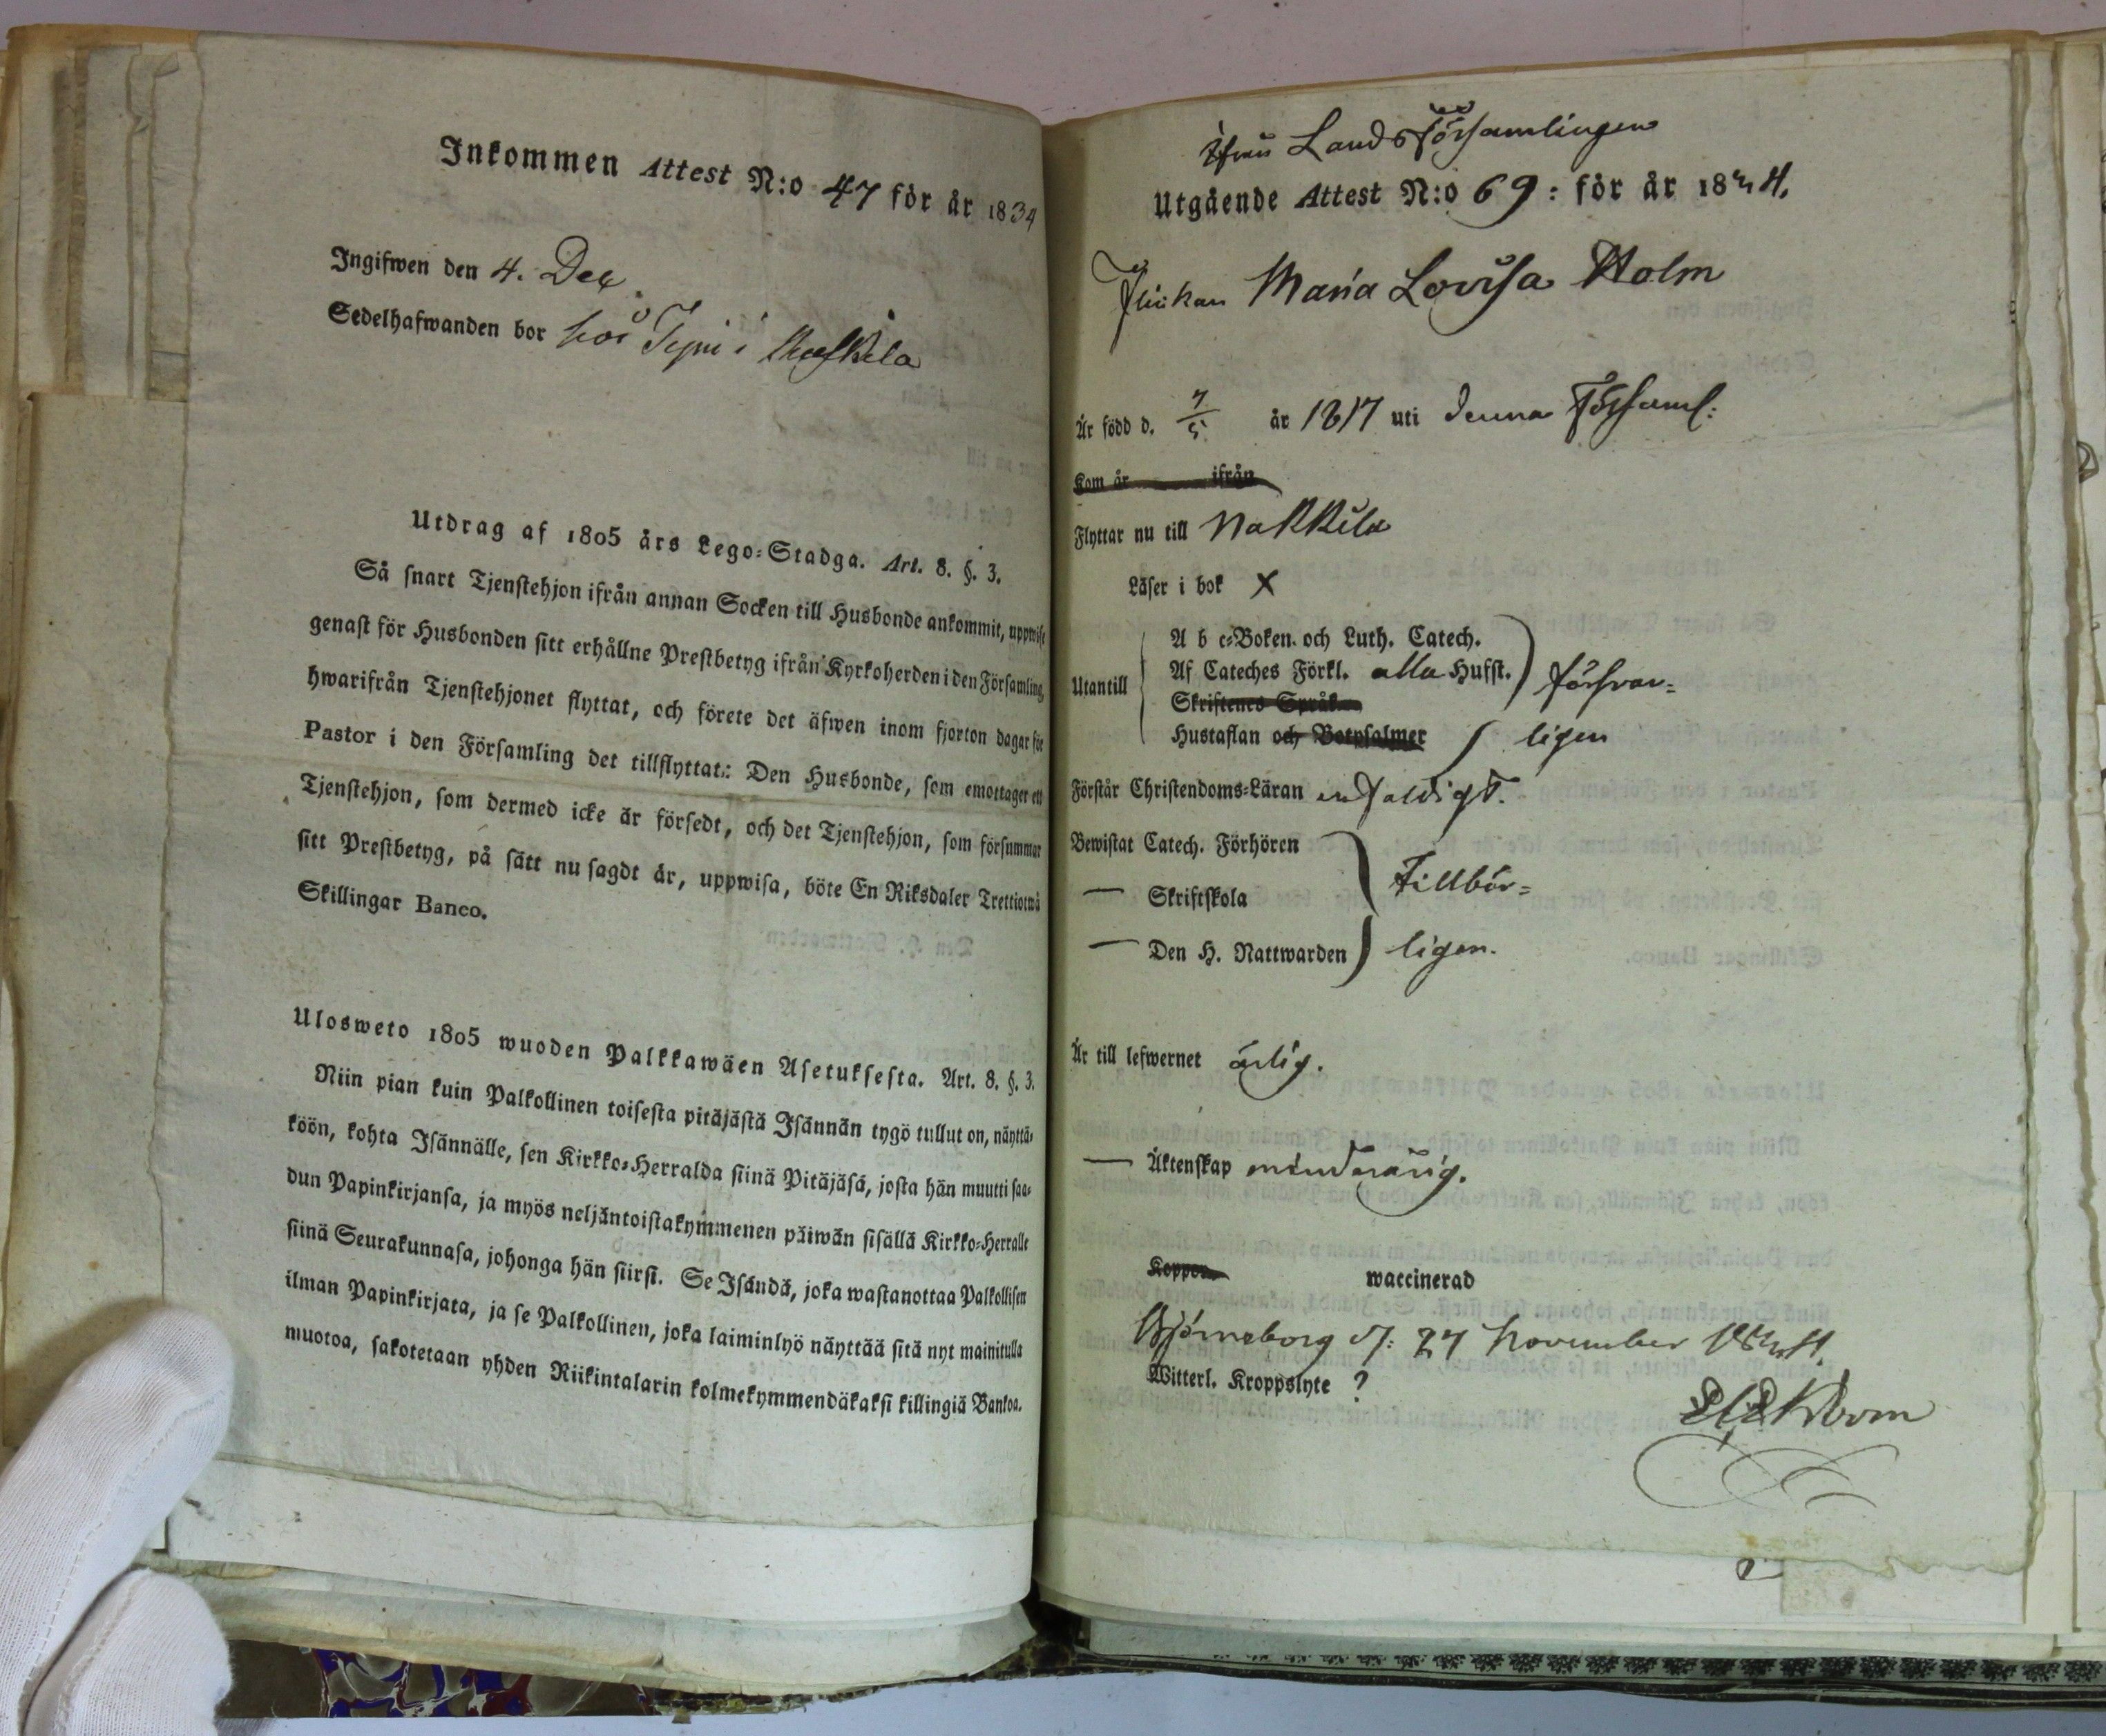 Inkommen Attest N:o 47 för år 1834
Ingifwen den 4. Dec.
Sedelhafwanden bor hos i
Utdrag af 1805 års Lego-Stadga. Art. 8. §. 3.
Så snart Tjenstehjon ifrån annan Socken till Husbonde ankommit, uppwise
genast för Husbonden sitt erhållne Prestbetyg ifrån Kyrkoherden i den Församling,
hwarifrån Tjenstehjonet flyttat, och förete det äfwen inom fjorton dagar för
Pastor i den Församling det tillflyttat: Den Husbonde, som emottager ett
Tjenstehjon, som dermed icke är försedt, och det Tjenstehjon, som försummar
sitt Prestbetyg, på sätt nu sagdt är, uppwisa, böte En Riksdaler Trettiotwå
Skillingar Banco.
Ulosweto 1805 wuoden Palkkawäen Asetuksesta. Art. 8. §. 3.
Niin pian kuin Palkollinen toisesta pitäjästä Isännän tygö tullut on, näyttä-
köön, kohta Isännälle, sen Kirkko-Herralda siinä Pitäjäsä, josta hän muutti saa-
dun Papinkirjansa, ja myös neljäntoistakymmenen päiwän sisällä Kirkko-Herralle
siinä Seurakunnasa, johonga hän siirsi. Se Isändä, joka wastanottaa Palkollisen
ilman Papinkirjata, ja se Palkollinen, joka laiminlyö näyttää sitä nyt mainitulla
muotoa, sakotetaan yhden Riikintalarin kolmekymmendäkaksi killingiä Bankoa.
ifrån Landsförsamlingen
Utgående Attest N:o 69: för år 1834.
Flickan Maria Lovisa Holm
Är född d. 7/5 år 1817 uti denna Församl:
Kom år ifrån
Flyttar nu till Nakkila
Läser i bok X
Utantill
A b c-Boken och Luth. Catech.
Af Cateches Förkl. alla Hufst. försvar-
Skriftenes Språk
Hustaflan och Botpsalmer ligen
Förstår Christendoms-Läran enfaldigt.
Bewistat Catech. Förhören Tillbör-
— Skriftskola
— Den H. Nattwarden ligen.
Är till lefwernet ärlig.
— Äktenskap minderårig.
Koppor waccinerad
Björneborg d: 27 November 1834.
Witterl. Kroppslyte ?